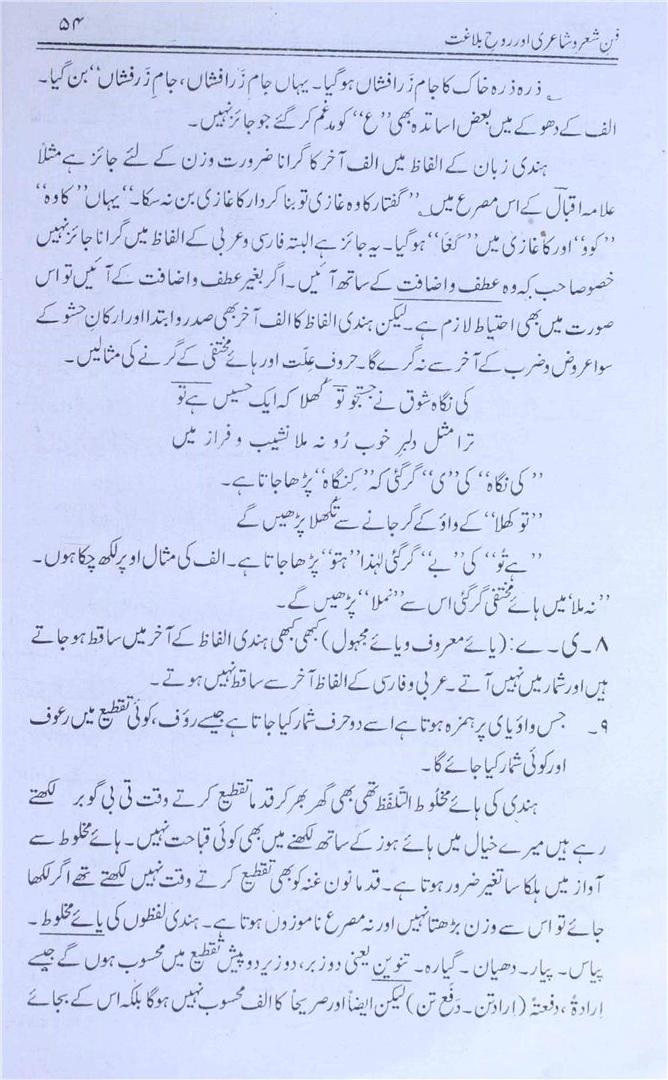 فنِ شعر و شاعری اور روحِ بلاغت ۵۴
ذرہ ذرہ خاک کا جام زر افشاں ہوگیا۔ یہاں جامِ زَر افشاں، جامِ زَرفشاں‘‘ بن گیا۔
الف کے دھوکے میں بعض اساتذہ بھی ’’ع‘‘ کو مدغم کر گئے جو جائز نہیں۔
ہندی زبان کے الفاظ میں الف آخر کا گرانا ضرورت وزن کے لئے جائز ہے مثلاً
علامہ اقبال کے اس مصرع میں ’’گفتار کا وہ غازی تو بنا کردار کا غازی بن نہ سکا۔‘‘ یہاں ’’کا وہ‘‘
’’کوو‘‘ اور کا غازی میں ’’کغا‘‘ ہوگیا۔ یہ جائز ہے البتہ فارسی و عربی کے الفاظ میں گرانا جائز نہیں
خصوصاً جب کہ وہ عطف و اضافت کے ساتھ آئیں۔ اگر بغیر عطف و اضافت کے آئیں تو اس
صورت میں بھی احتیاط لازم ہے۔ لیکن ہندی الفاظ کا الف آخر بھی صدر و ابتدا اور ارکانِ حشو کے
سوا عروض و ضرب کے آخر سے نہ گرے گا۔ حروف علّت اور ہائے مختفی کے گرنے کی مثالیں۔
کی نگاہ شوق نے جستجو تو کُھلا کہ ایک حسیں ہے تو
ترا مثل دلبرِ خوب رُو نہ ملا نشیب و فراز میں
’’کی نگاہ‘‘ کی ’’ی‘‘ گر گئی کہ ’’کِنگاہ‘‘ پڑھا جاتا ہے۔
’’تو کھلا‘‘ کے واؤ کے گر جانے سے تُکھلا پڑھیں گے
’’ہے تُو‘‘ کی ’’ے‘‘ گر گئی لہٰذا ’’ہتو‘‘ پڑھا جاتا ہے۔ الف کی مثال اوپر لکھ چکا ہوں۔
’’نہ ملا‘‘ میں ہائے مختفی گر گئی اس سے ’’نملا‘‘ پڑھیں گے۔
۸۔ ی۔ ے: (یائے معروف و یائے مجہول) کبھی کبھی ہندی الفاظ کے آخر میں ساقط ہو جاتے
ہیں اور شمار میں نہیں آتے۔ عربی و فارسی کے الفاظ آخر سے ساقط نہیں ہوتے۔
۹۔ جس واؤ یا ی پر ہمزہ ہوتا ہے اسے دو حرف شمار کیا جاتا ہے جیسے رؤف، کوئی تقطیع میں رعوف
اور کوئی شمار کیا جائے گا۔
ہندی کی ہائے مخلُوط التَّلَفّظ تھی بھی گھر بھر کر قدما تقطیع کرتے وقت تی بی گو بر لکھتے
رہے ہیں میرے خیال میں ہائے ہوز کے ساتھ لکھنے میں بھی کوئی قباحت نہیں۔ ہائے مخلوط سے
آواز میں ہلکا سا تغیر ضرور ہوتا ہے۔ قدما نون غنہ کو بھی تقطیع کرتے وقت نہیں لکھتے تھے اگر لکھا
جائے تو اس سے وزن بڑھتا نہیں اور نہ مصرع ناموزوں ہوتا ہے۔ ہندی لفظوں کی یائے مخلوط۔
پیاس۔ پیار۔ دھیان۔ گیارہ۔ تنوین یعنی دو زبر، دو زیر دو پیش تقطیع میں محسوب ہوں گے جیسے
اِرادۃً، دفعتہً (ارادتن۔ دَفعَ تن) لیکن ایضاً اور صریحاً کا الف محسوب نہیں ہوگا بلکہ اس کے بجائے